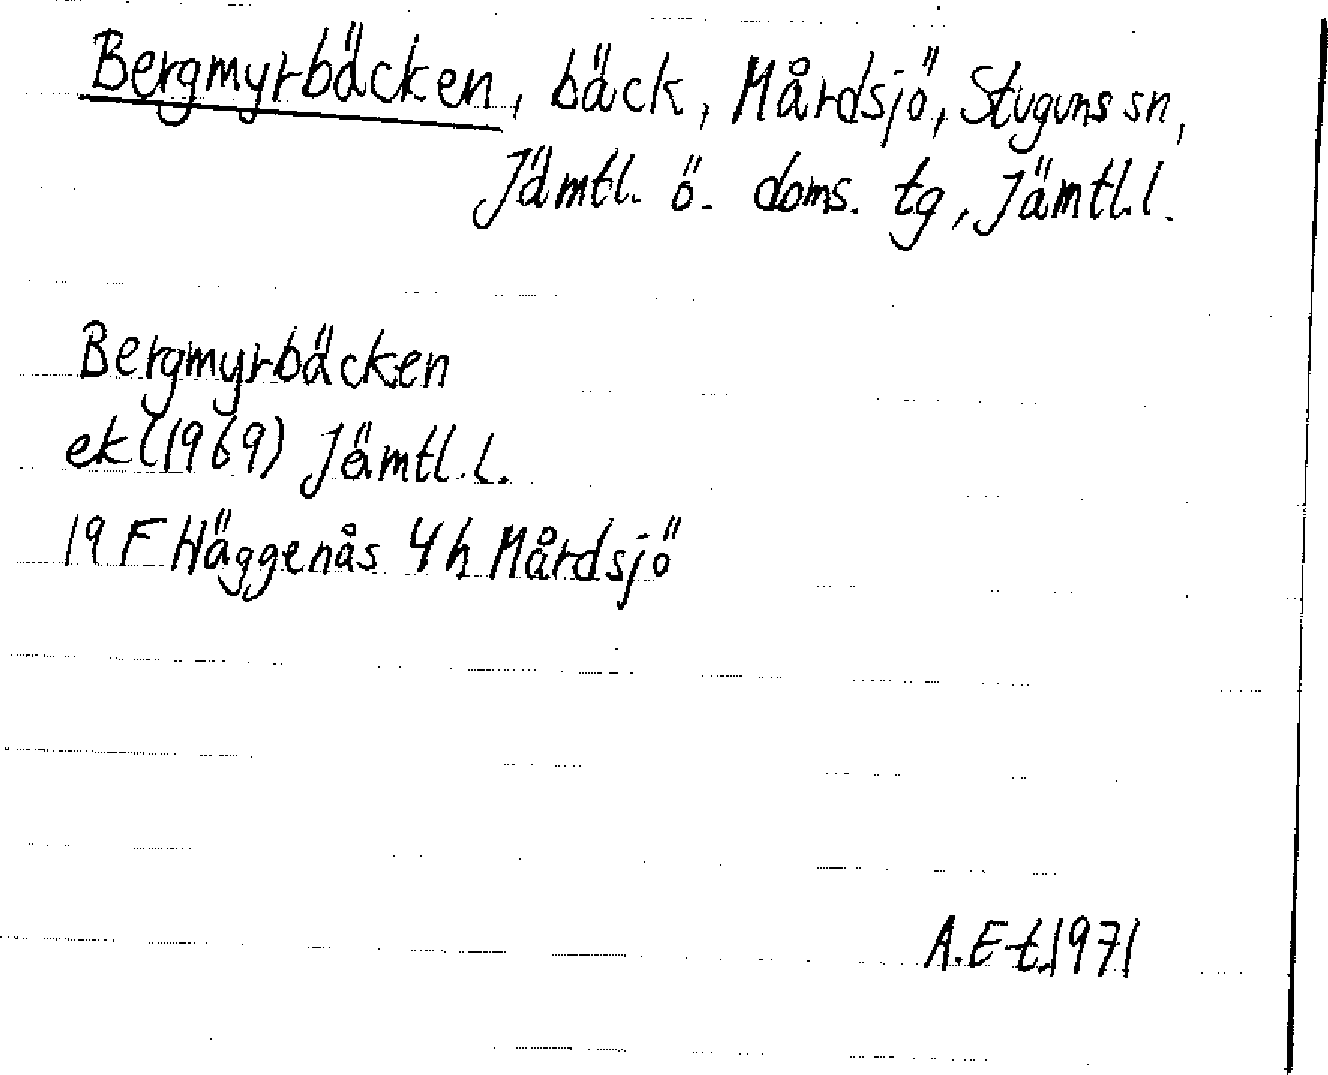 Bergmyrbäcken, bäck, Mårdsjö, Stuguns sn,
Jämtl. ö. doms. tg, Jämtl.l.
Bergmyrbäcken
ek (1969) Jämtl.l.
19 F Häggenås 4h Mårdsjö
A.E-t.1971